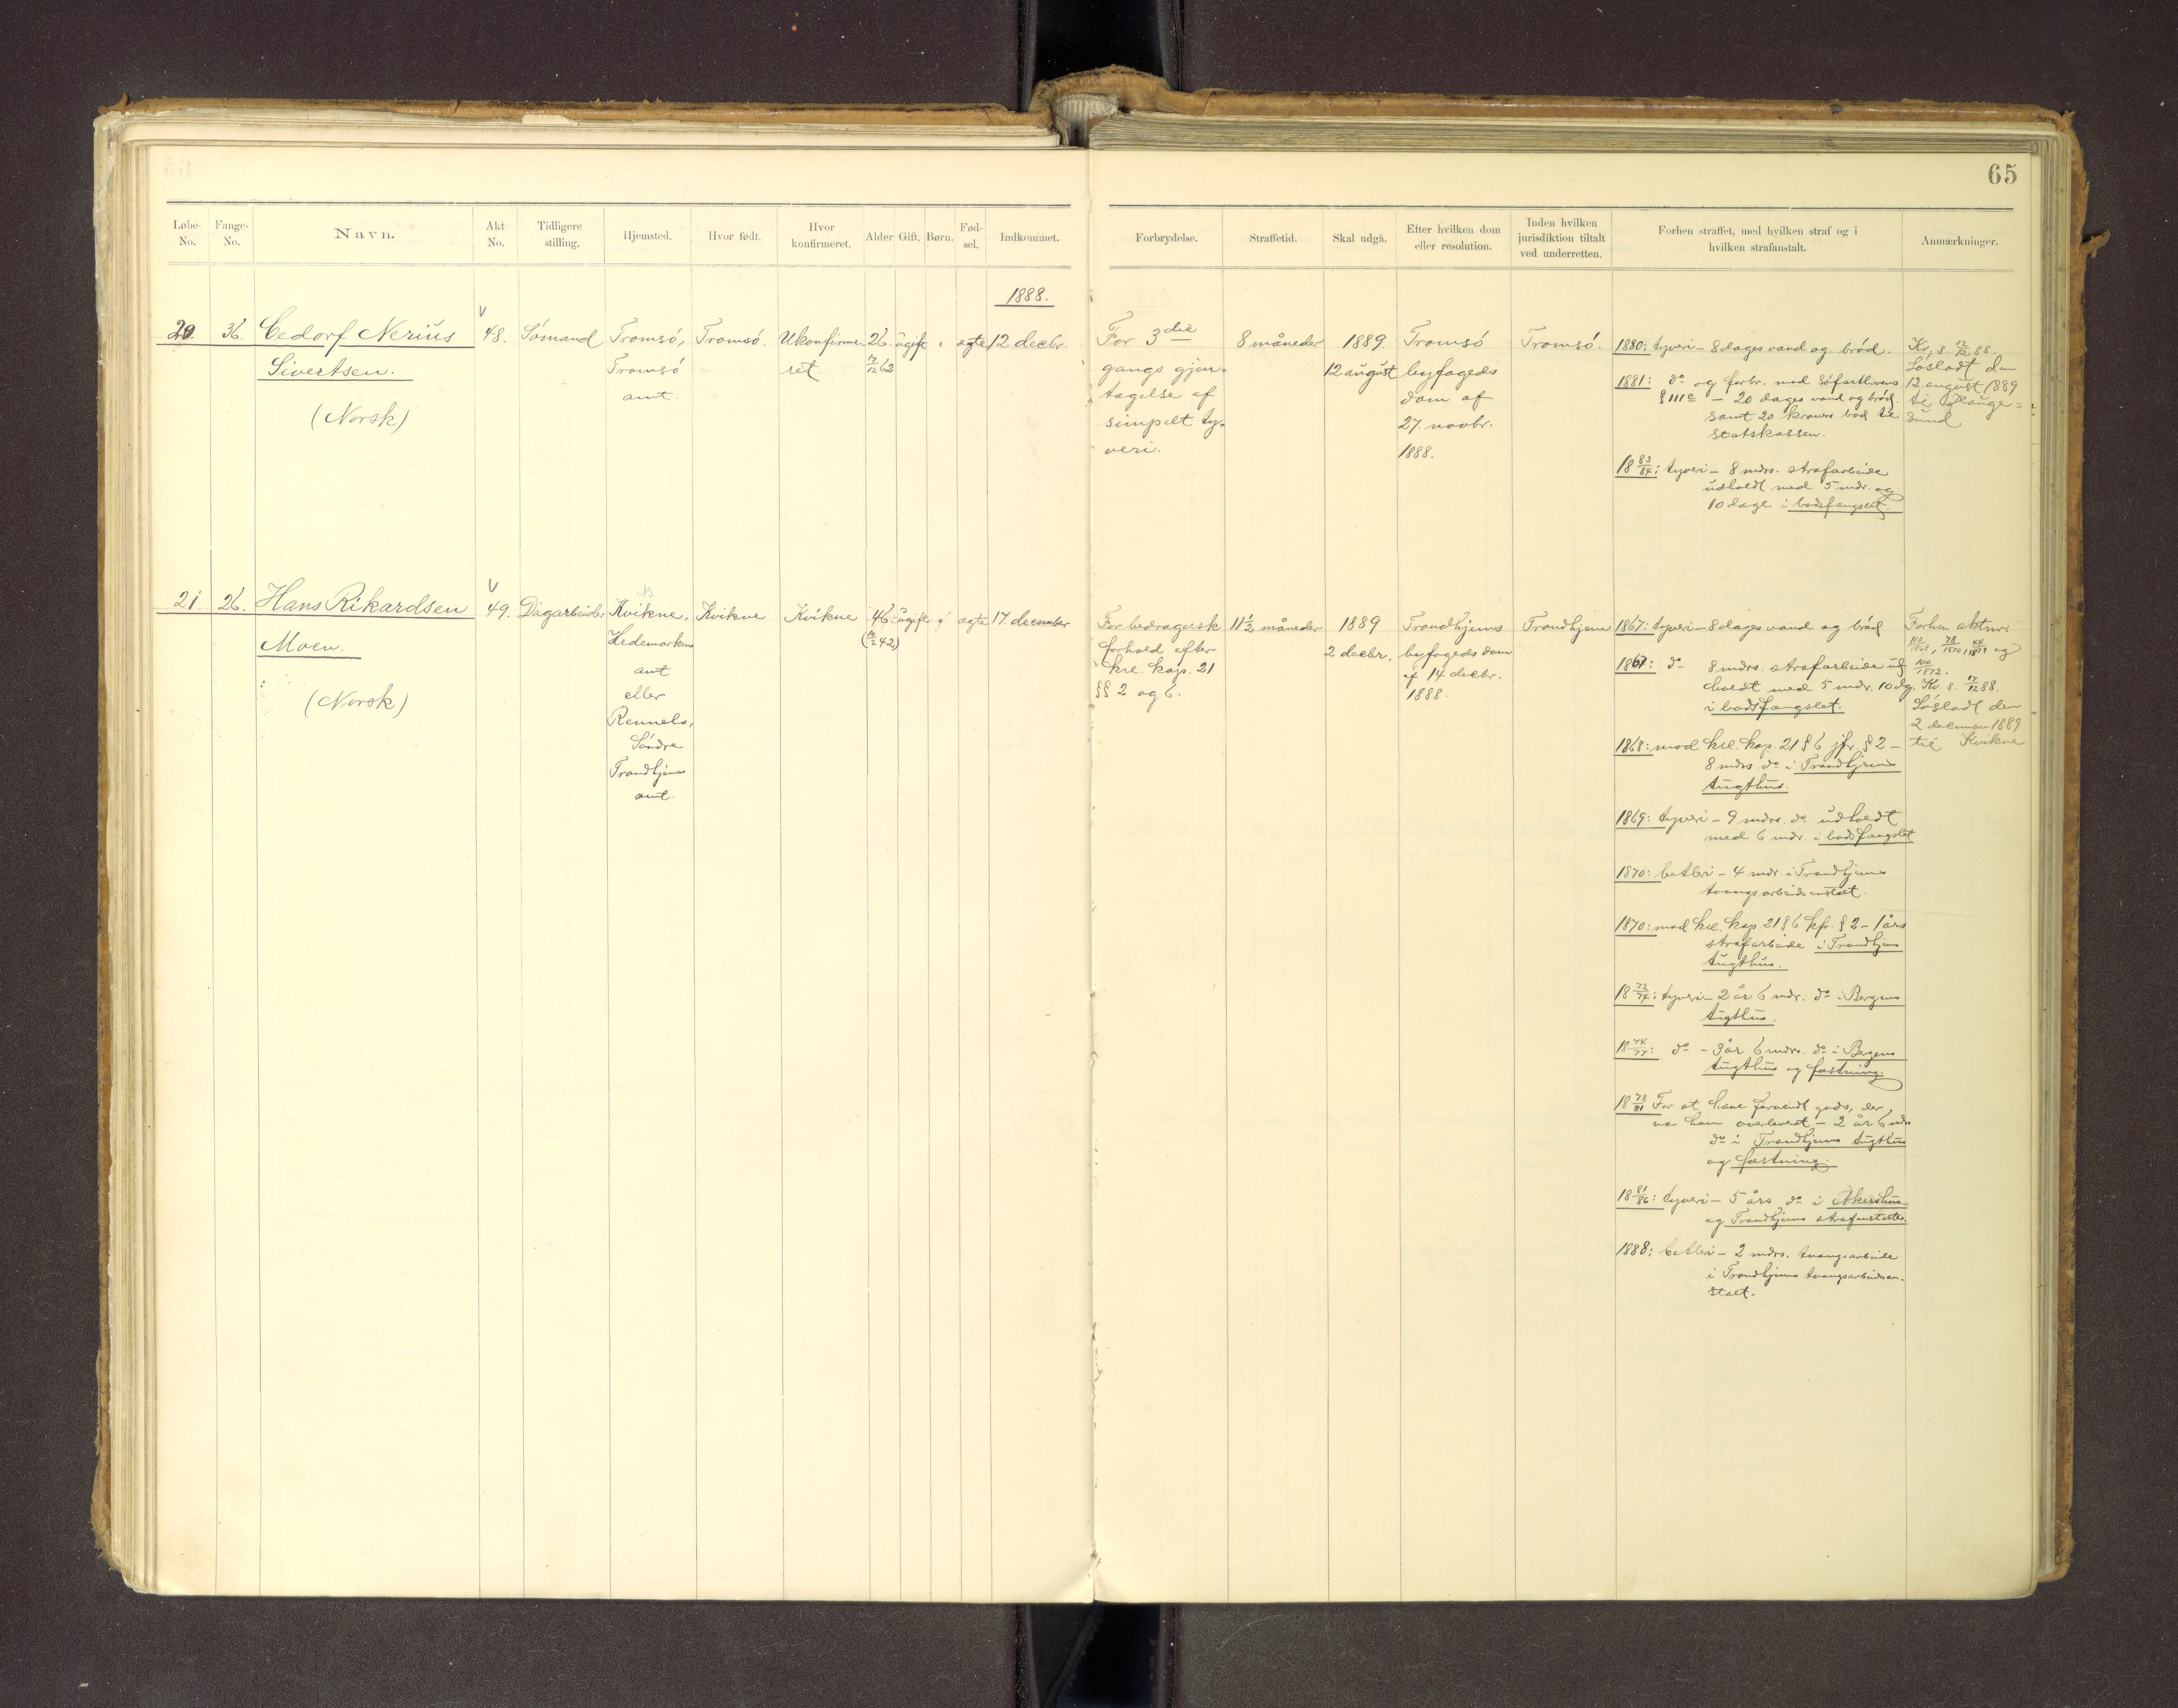 65
Løbe-No.
Fange-No.
Navn.
Akt No.
Tidligere stilling.
Hjemsted.
Hvor født.
Hvor konfirmeret.
Alder
Gift.
Børn.
Fød-sel.
Indkommet.
Forbrydelse.
Straffetid.
Skal udgå.
Efter hvilken dom eller resolution.
Inden hvilken jurisdiktion tiltalt ved underretten.
Forhen straffet, med hvilken straf og i hvilken strafanstalt.
Anmærkninger.
1888.
20.
36.
Cedorf Nerius
Sivertsen.
(Norsk)
V
48.
Sømand
Tromsø,
Tromsø
amt.
Tromsø.
Ukonfirme-
ret
26.
17/12 62
ugift
ı
ægte
12 decbr.
For 3die
gangs gjen-
tagelse af
simpelt ty-
veri.
8 måneder
1889.
12 august
Tromsø
byfogeds
dom af
27. novbr.
1888.
Tromsø.
1880: tyveri – 8 dages vand og brød.
1881: do og forbr. mod søfartlovens
§ 111 c – 20 dages vand og brød
samt 20 kroners bod til
statskassen.
18 83/84: tyveri – 8 mdrs. strafarbeide
udholdt med 5 mdr. og
10 dage i bodsfængslet.
Kv. s. 12/12 88.
Løsladt den
12 august 1889
til Hauge-
sund
21.
26.
Hans Rikardsen
Moen.
(Norsk)
V
49.
Dagarbeider
Kvikne,
Hedemarkens
amt
eller
Rennebo,
Søndre
Trondhjems
amt.
Kvikne
Kvikne
46
ugift
ægte
17 december
For bedragersk
forhold efter
krl. kap. 21
§§ 2 og 6.
11 1/2 måneder
1889
2 decbr.
Trondhjems
byfogeds dom
af 14 decbr.
1888.
Trondhjem
1867: tyveri – 8 dages vand og brød
1867: do 8 mdrs. strafarbeide ud-
holdt med 5 mdr. 10 dg.
i bodsfængslet.
1868: mod krl. kap. 21 § 6 jfr. § 2 –
8 mdrs. do i Trondhjems
tugthus.
1869: tyveri – 9 mdrs. do udholdt
med 6 mdr. i bodsfængslet
1870: betleri – 4 mdr. i Trondhjems
tvangsarbeidsanstalt.
1870: mod krl. kap. 21 § 6 kfr. § 2 – 1 års
strafarbeide i Trondhjems
tugthus.
18 72/74: tyveri – 2 år 6 mdr. do i Bergens
tugthus.
18 74/77: do – 3 år 6 mdrs. do i Bergens
tugthus og fæstning.
18 78/81 For at have forvendt gods, der
var ham overleveret – 2 år 6 mdr
do i Trondhjems tugthus
og fæstning.
18 81/86: tyveri – 5 års do i Akershus
og Trondhjems strafanstalter.
1888: betleri – 2 mdrs. tvangsarbeide
i Trondhjems tvangsarbeidsan-
stalt.
Forhen aktnr.
110/1868, 78/1870, 44/1871 og
100/1872.
Kv. s. 17/12 88.
Løsladt den
2 december 1889
til Kvikne